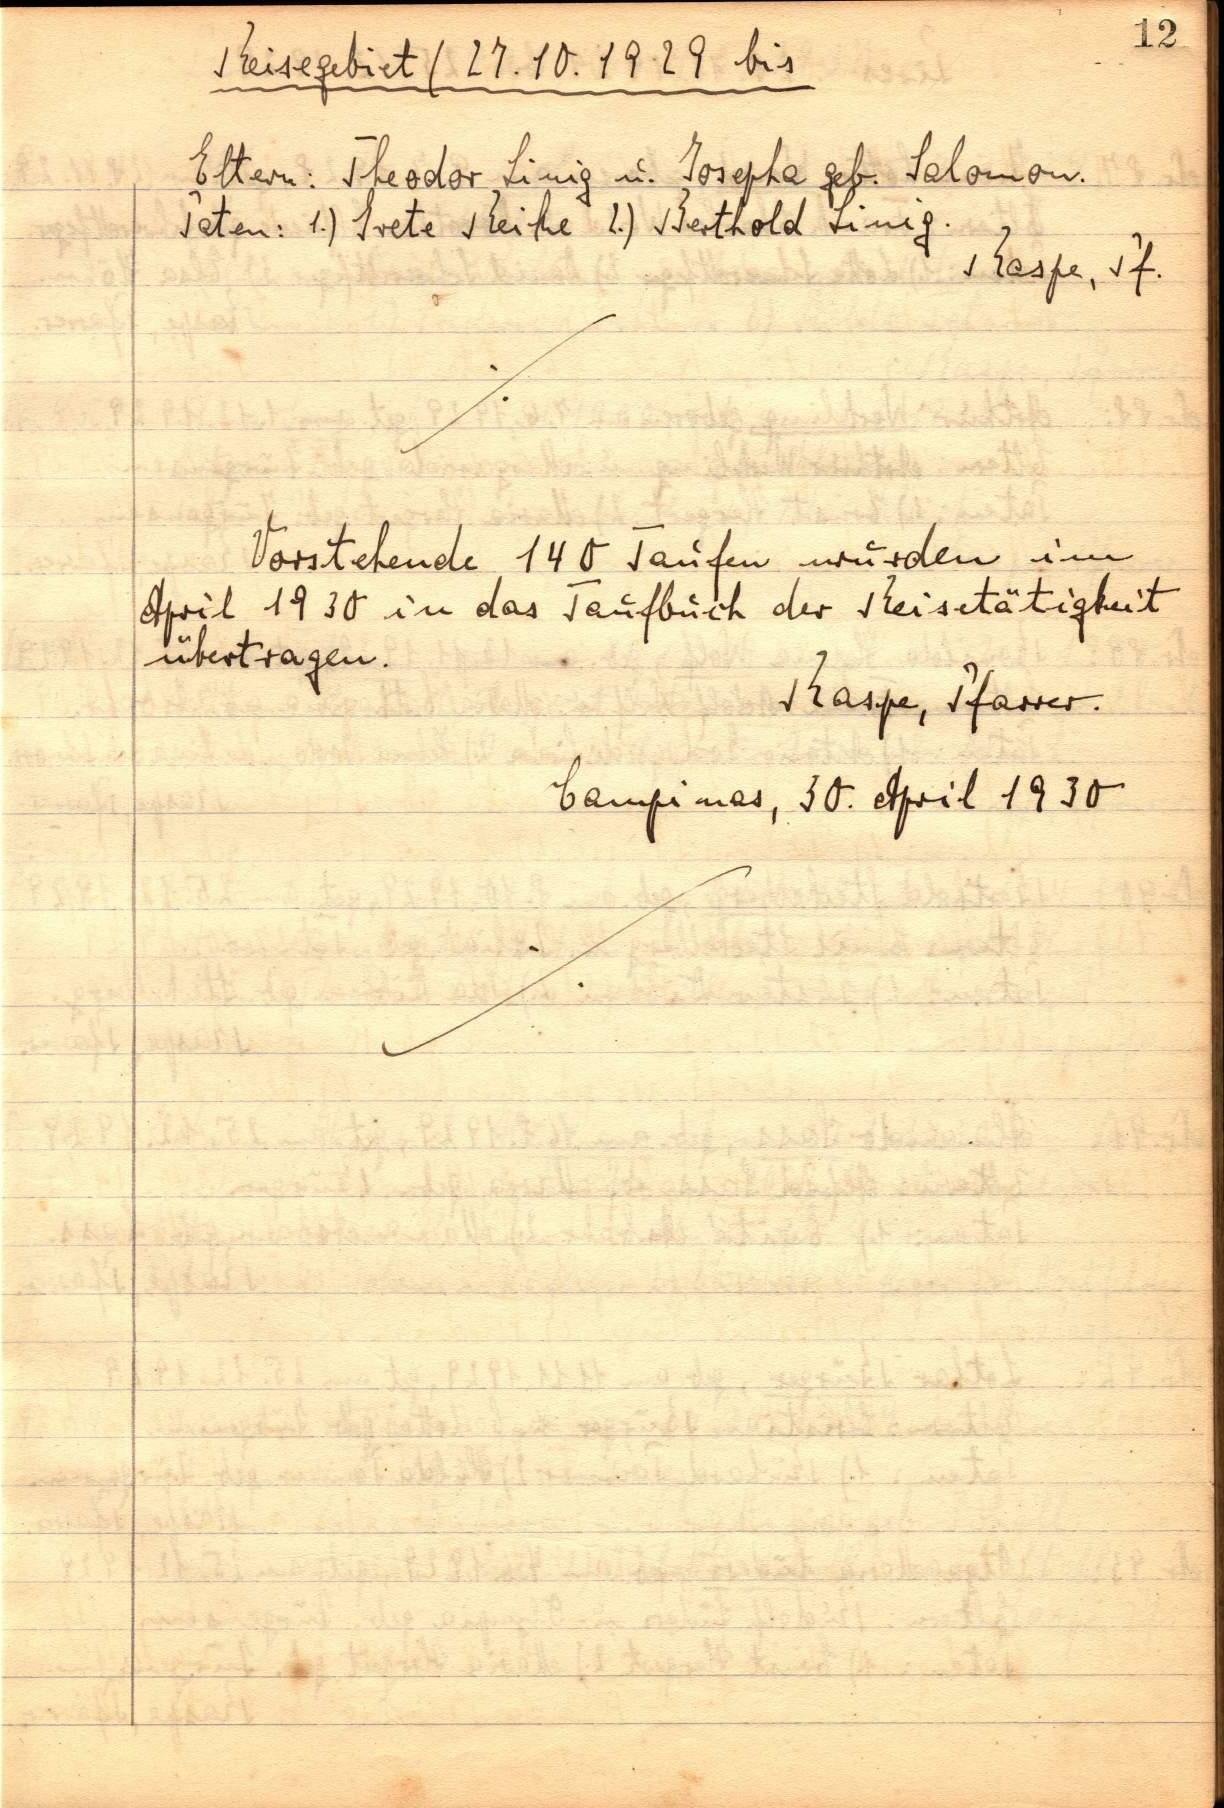 12
Reisegebiet (27.10.1929 bis
Eltern: Theodor Linig u. Josepha geb. Salomon.
Paten: 1.) Grete Reihe 2.) Berthold Linig.
Raspe, Pf.
Vorstehende 140 Taufen wurden im
April 1930 in das Taufbuch der Reisetätigkeit
übertragen.
Raspe, Pfarrer.
Campinas, 30. April 1930